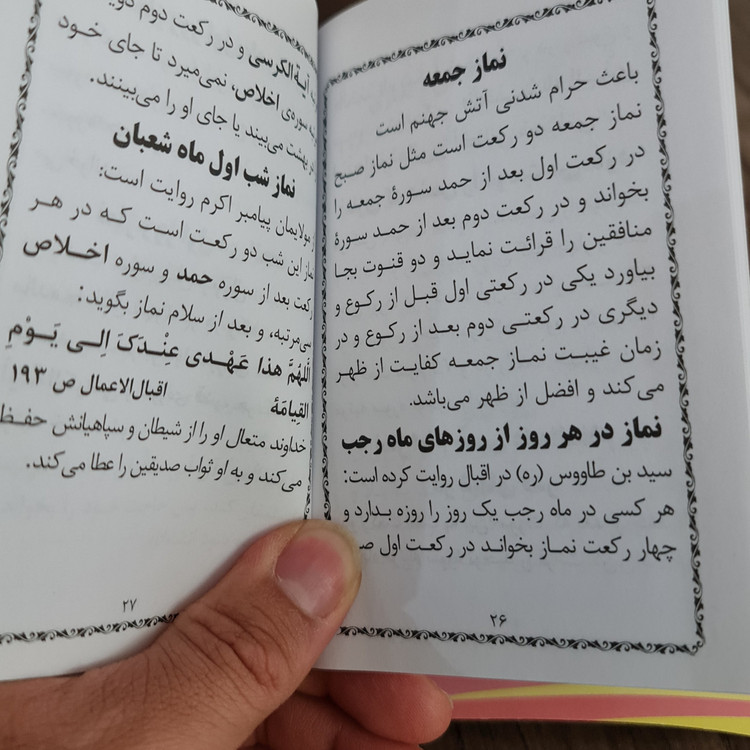 نماز جمعه
باعث حرام شدنی آتش جهنم است
نماز جمعه دو رکعت است مثل نماز صبح
در رکعت اول بعد از حمد سورهٔ جمعه را
بخواند و در رکعت دوم بعد از حمد سورهٔ
منافقین را قرائت نماید و دو قنوت بجا
بیاورد یکی در رکعتی اول قبل از رکوع و
دیگری در رکعتی دوم بعد از رکوع و در
زمان غیبت نماز جمعه کفایت از ظهر
می‌کند و افضل از ظهر می‌باشد.
نماز در هر روز از روزهای ماه رجب
سید بن طاووس (ره) در اقبال روایت کرده است:
هر کسی در ماه رجب یک روز را روزه بدارد و
چهار رکعت نماز بخواند در رکعت اول
۲۶
آیةالکرسی و در رکعت دوم
سوره‌ی اخلاص، نمی‌میرد تا جای خود
در بهشت می‌بیند یا جای او را می‌بینند.
نماز شب اول ماه شعبان
مولایمان پیامبر اکرم روایت است:
نماز این شب دو رکعت است که در هر
رکعت بعد از سوره حمد و سوره اخلاص
سی‌مرتبه، و بعد از سلام نماز بگوید:
اللهُمَّ هذا عَهْدی عِنْدَکَ اِلی یَوْمِ
القِیامَة اقبال‌الاعمال ص ۱۹۳
خداوند متعال او را از شیطان و سپاهیانش حفظ
می‌کند و به او ثواب صدیقین را عطا می‌کند.
۲۷